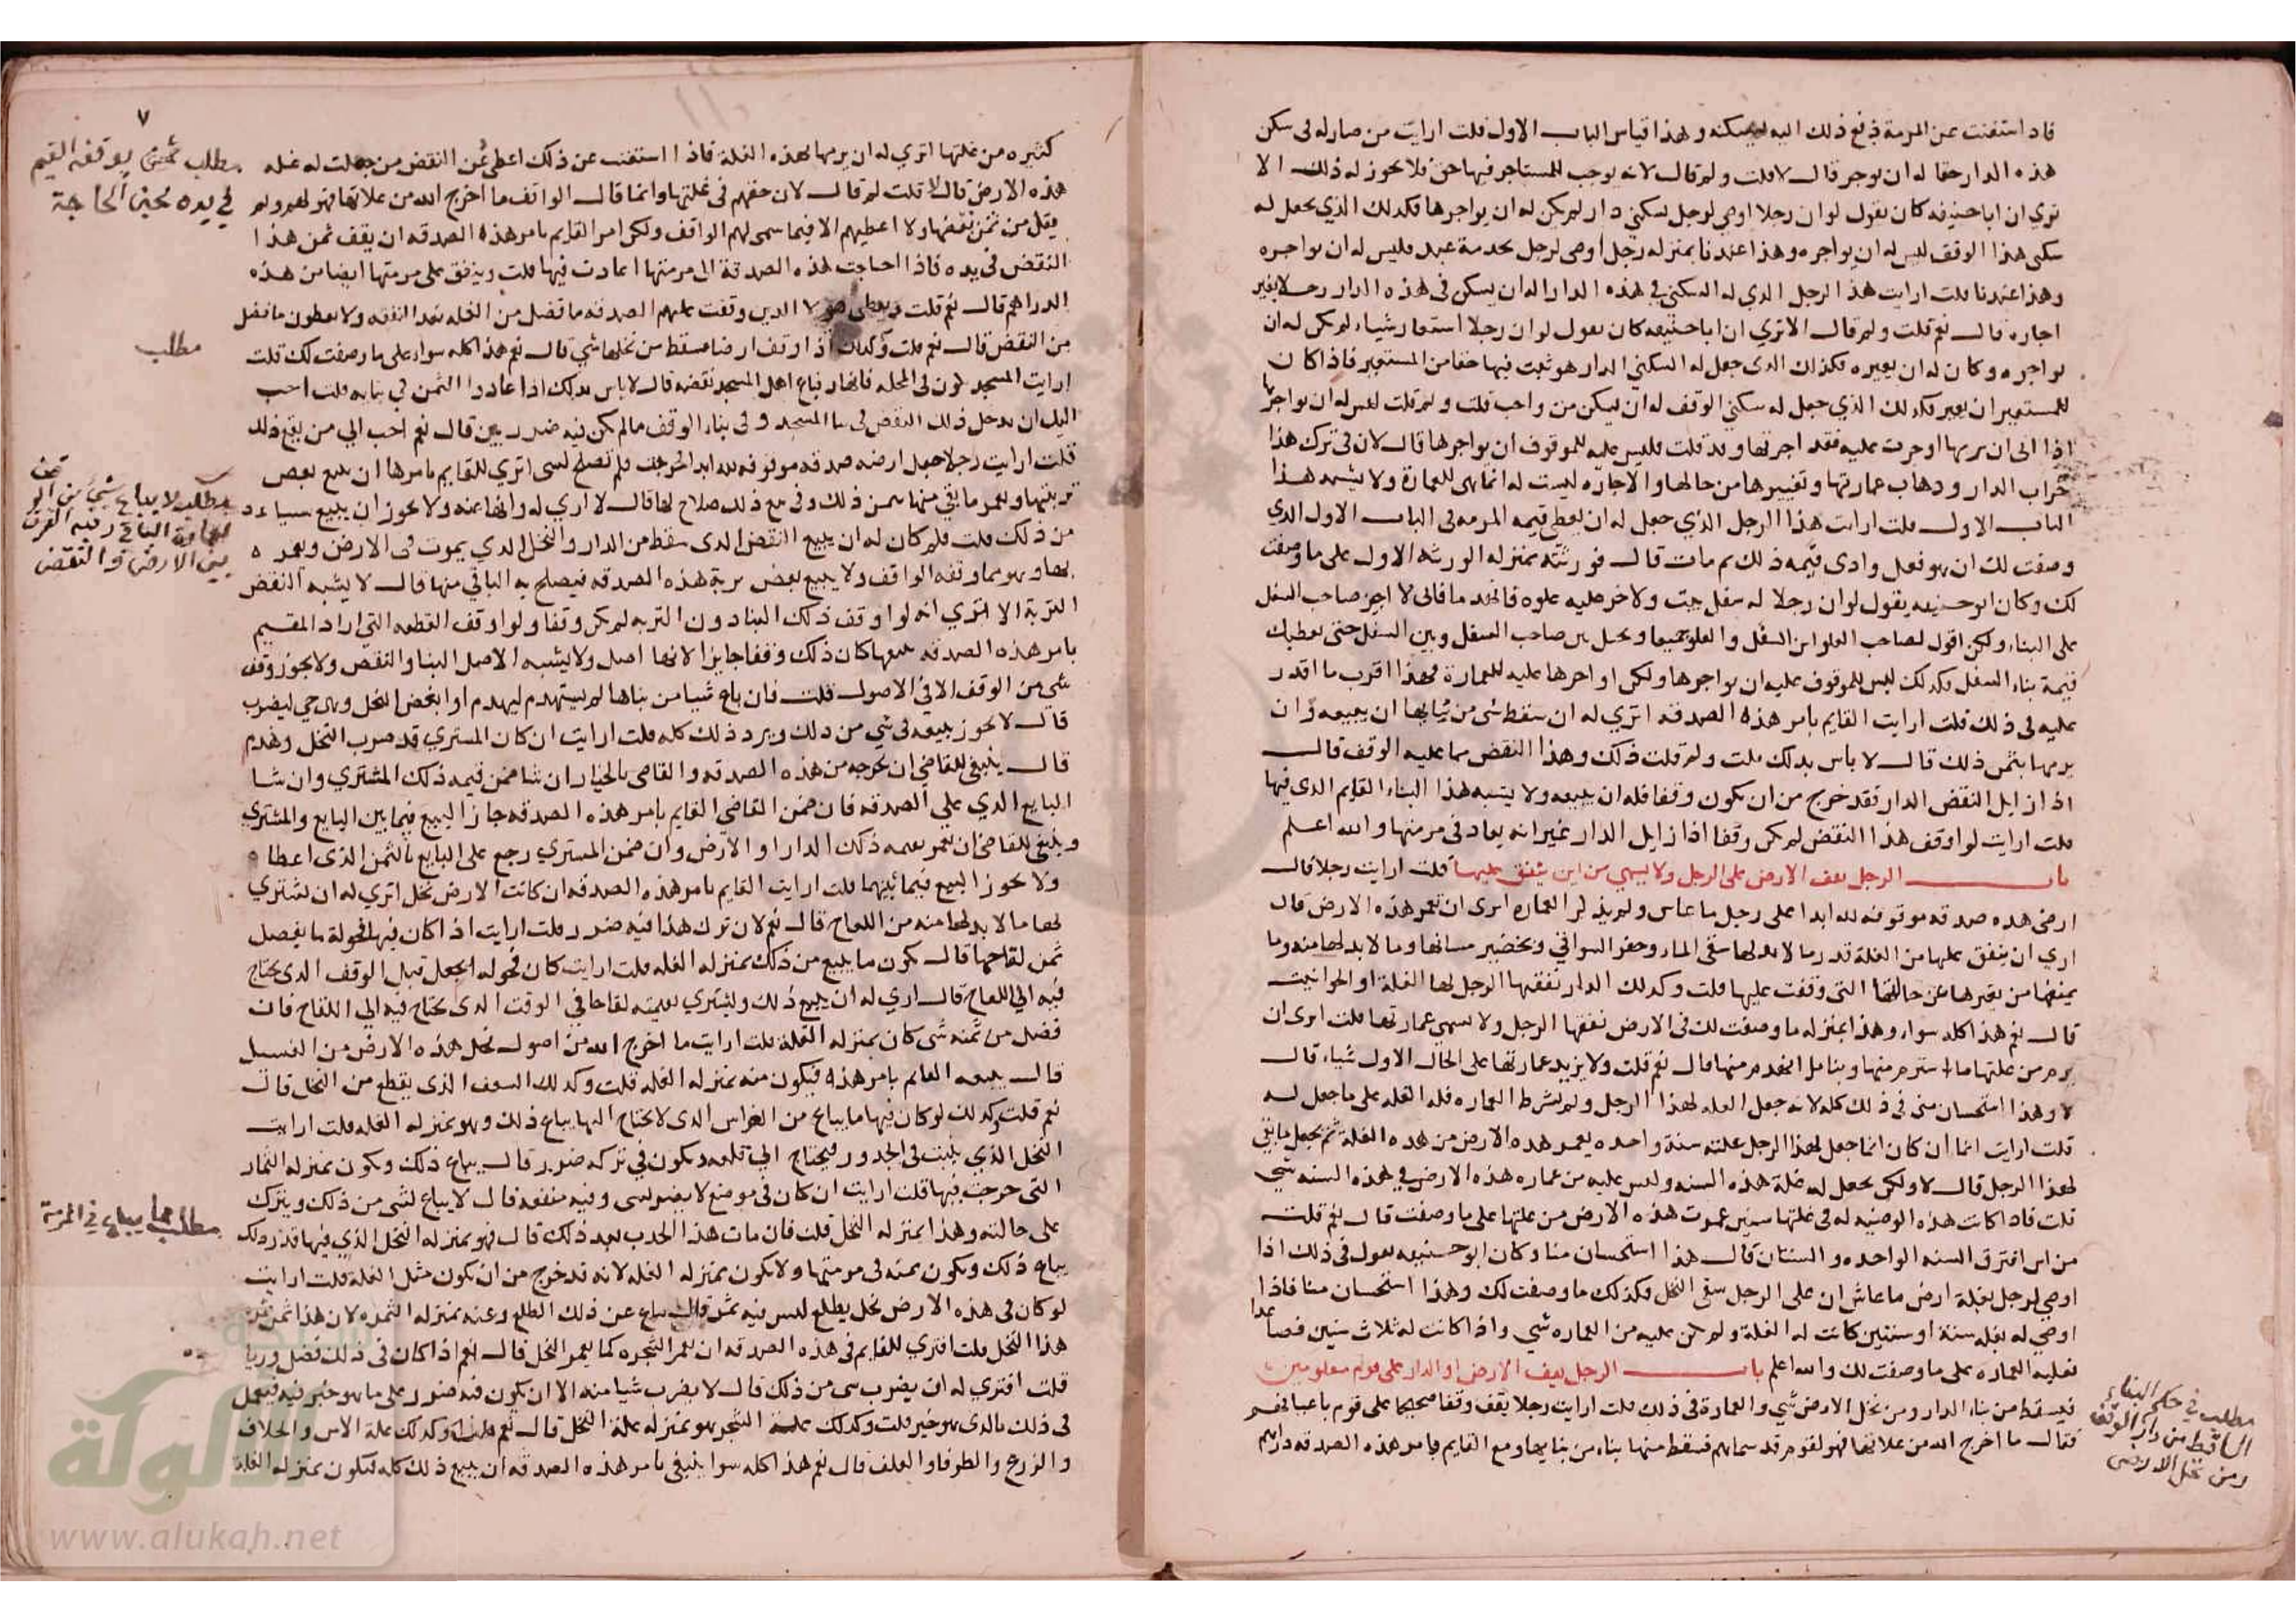 فاذا استغنت عن المرمة دفع ذلك اليه ليسكنه وهذا قياس الباب الاول قلت ارايت من صار له في سكن
هذه الدار حقا له ان يوجر قال لا قلت ولم قال لانه يوجب للمستاجر فيها حق فلا يجوز له ذلك الا
تري ان ابا حنيفه كان يقول لو ان رجلا اوصي لرجل بسكني دار لم يكن له ان يواجرها فكذلك الذي يجعل له
سكني هذا الوقف ليس له ان يواجره وهذا عندنا بمنزله رجل اوصي لرجل بخدمة عبد فليس له ان يواجره
وهذا عندنا قلت ارايت هذا الرجل الذي له السكني في هذه الدار اله ان يسكن في هذه الدار رجلا بغير
اجاره قال نعم قلت ولم قال الا تري ان ابا حنيفه كان يقول لو ان رجلا استعار شياء لم يكن له ان
يواجره وكان له ان يعيره فكذلك الذي جعل له السكني الدار هو ثبت فيها حقا من المستعير فاذا كان
للمستعير ان يعير فكذلك الذي جعل له سكني الوقف له ان يسكن من واحب قلت ولم قلت ليس له ان يواجرها
اذا ابي ان يرمها اوجرت عليه فقد اجرتها وقد قلت فليس عليه للموقوف ان يواجرها قال لان في ترك هذا
خراب الدار وذهاب عمارتها وتغييرها من حالها والاجاره ليست له انما هي للعمارة ولا يشبه هذا
الباب الاول قلت ارايت هذا الرجل الذي جعل له ان يعطي قيمه المرمه في الباب الاول الذي
وصفت لك ان هو فعل وادي قيمه ذلك ثم مات قال فورثته بمنزله الورثه الاول على ما وصفت
لك وكان ابو حنيفه يقول لو ان رجلا له سفل بيت ولاخر عليه علوه فانهدما فاني لا اجبر صاحب السفل
على البناء ولكن اقول لصاحب العلو ابن السفل والعلو جميعا وبحل بين صاحب السفل وبين السفل حتى يعطيك
قيمة بناء السفل فكذلك ليس للموقوف عليه ان يواجرها ولكن اواجرها عليه للعمارة فهذا اقرب ما اقدر
عليه في ذلك قلت ارايت القايم بامر هذه الصدقه اتري له ان سقط شي من بنائها ان يبيعه وان
يرمها بثمن ذلك قال لا باس بذلك قلت ولم قلت ذلك وهذا النقض مما عليه الوقف قال
اذا زايل النقض الدار فقد خرج من ان يكون وقفا فله ان يبيعه ولا يشبه هذا البناء القايم الذي فيها
قلت ارايت لو اوقف هذا النقض لم يكن وقفا اذا زايل الدار غير انه يعاد في مرمتها والله اعلم
باب الرجل يقف الارض على الرجل ولا يسمي من اين ينفق عليها قلت ارايت رجلا قال
ارضي هذه صدقه موقوفه لله ابدا على رجل ما عاش ولم يذكر العماره اتري ان تعمر هذه الارض قال
اري ان ينفق عليها من الغلة قدر ما لا بد لها سقى الماء وحفر السواقي وتخضير مسناتها وما لا بد لها منه وما
يمنعها من تغيرها عن حالها التي وقفت عليها قلت وكذلك الدار يقفها الرجل لها الغلة او الحوانيت
قال نعم هذا كله سواء وهذا بمنزله ما وصفت لك في الارض يقفها الرجل ولا يسمي عمارتها قلت اتري ان
يرم من غلتها ما استرم منها وبنا ما انهدم منها قال نعم قلت ولا يزيد عمارتها على الحال الاول شياء قال
لا وهذا استحسان منى في ذلك كله لانه جعل الغله لهذا الرجل ولم يشرط العماره فله الغله على ما جعل له
قلت ارايت انما ان كان انما جعل لهذا الرجل غلته سنة واحده يعمر هذه الارض من هذه الغلة ثم يجعل ما بقى
لهذا الرجل قال لا ولكن يجعل له غلة هذه السنه وليس عليه من عماره هذه الارض في هذه السنه شي
قلت فاذا كانت هذه الوصيه له في غلتها سنين عمرت هذه الارض من غلتها على ما وصفت قال نعم قلت
من اين افترق السنه الواحده والسنتان قال هذا استحسان منا وكان ابو حنيفه يقول في ذلك اذا
اوصي لرجل بغلة ارض ما عاش ان على الرجل سقى النخل فكذلك ما وصفت لك وهذا استحسان منا فاذا
اوصي له بغله سنة او سنتين كانت له الغلة ولم يكن عليه من العماره شي واذا كانت له ثلاث سنين فصاعدا
فعليه العماره على ما وصفت لك والله اعلم باب الرجل يقف الارض او الدار على قوم معلومين
فيسقط من بناء الدار ومن نخل الارض شي والعمارة في ذلك قلت ارايت رجلا يقف وقفا صحيحا على قوم باعيانهم
فقال ما اخرج الله من غلاتها فهو لقوم قد سماهم فسقط منها بناء من بنائها ومع القايم بامر هذه الصدقه دراهم
مطلب في حكم البناء
الساقط من دار الوقف
ومن نخل الارض
٧
كثيره من غلتها اتري له ان يرمها بهذه الغلة فاذا استغنت عن ذلك اعطي ثمن النقض من جعلت له غله
هذه الارض قال لا قلت لم قال لان حقهم في غلتها وانما قال الواقف ما اخرج الله من غلاتها فهو لهم ولم
يقل من ثمن نقضها ولا اعطيهم الا فيما سمي لهم الواقف ولكن امر القايم بامر هذه الصدقه ان يقف ثمن هذا
النقض في يده فاذا احتاجت هذه الصدقة الى مرمتها اعادت فيها قلت وينفق على مرمتها ايضا من هذه
الدراهم قال نعم قلت ويعطى هولا الذين وقفت عليهم الصدقه ما فضل من الغله بعد النفقه ولا يعطون ما فضل
من النقض قال نعم قلت وكذلك اذا وقف ارضا فسقط من نخلها شي قال نعم هذا كله سواء على ما وصفت لك قلت
ارايت المسجد يكون في المحله فانهار فباع اهل المسجد نقضه قال لا باس بذلك اذا اعادوا الثمن في بنائه قلت احب
اليك ان يدخل ذلك النقض في بنا المسجد وفي بناء الوقف ما لم يكن فيه ضرر بين قال نعم احب الي من بيع ذلك
قلت ارايت رجلا جعل ارضه صدقه موقوفه لله ابدا فخربت فلم تصلح لشي اتري للقايم بامرها ان يبيع بعض
تربتها ويعمر ما بقي منها بثمن ذلك وفي بيع ذلك صلاح لها قال لا اري له وانهاه عنه ولا يجوز ان يبيع شياء
من ذلك قلت فلم كان له ان يبيع النقض الذي سقط من الدار والنخل الذي يموت في الارض ويعمره
بها وهو مما وقفه الواقف ولا يبيع بعض تربة هذه الصدقه فيصلح به الباقي منها قال لا يشبه النقض
التربة الا تري انه لو اوقف ذلك البنا دون التربه لم يكن وقفا ولو اوقف القطعه التي اراد المقيم
بامر هذه الصدقه بيعها كان ذلك وقفا جايزا لانها اصل ولا يشبه الاصل البنا والنقض ولا يجوز وقف
شي من الوقف الا في الاصول قلت فان باع شيا من بناها لم يستهدم ليهدم او ابعض النخل وهي حي ليضرب
قال لا يجوز بيعه في شي من ذلك ويرد ذلك كله قلت ارايت ان كان المشتري قد ضرب النخل وهدم
قال ينبغي للقاضي ان يخرجه من هذه الصدقه والقاضي بالخيار ان شا ضمن قيمه ذلك المشتري وان شا
البايع الذي على الصدقه فان ضمن القاضي القايم بامر هذه الصدقه جاز البيع فيما بين البايع والمشتري
وينبغي للقاضي ان يعمر بقيمه ذلك الدار او الارض وان ضمن المشتري رجع على البايع بالثمن الذي اعطاه
ولا يجوز البيع فيما بينهما قلت ارايت القايم بامر هذه الصدقه ان كانت الارض نخل اتري له ان يشتري
لها ما لا بد لها منه من اللقاح قال نعم لان ترك هذا فيه ضرر قلت ارايت اذا كان فيها فحولة ما يفضل
ثمن لقاحها قال يكون ما يبيع من ذلك بمنزله الغله قلت ارايت كان فحوله ايجعل قبل الوقف الذي يحتاج
فيه الي اللقاح قال اري له ان يبيع ذلك ويشتري بقيمته لقاحا في الوقت الذي يحتاج فيه الي اللقاح فان
فضل من ثمنه شي كان بمنزله الغلة قلت ارايت ما اخرج الله من اصول نخل هذه الارض من الفسيل
قال يبيعه القايم بامر هذه فيكون منه بمنزله الغله قلت وكذلك السعف الذي يقطع من النخل قال
نعم قلت وكذلك لو كان فيها ما يباع من الغراس الذي لا يحتاج اليها يباع ذلك وهو بمنزله الغله قلت ارايت
النخل الذي ينبت في الجدور فيحتاج الي قلعه ويكون في تركه ضرر قال يباع ذلك ويكون بمنزله الثمار
التي خرجت فيها قلت ارايت ان كان في موضع لا يضر بشي وفيه منفعه قال لا يباع لشي من ذلك ويترك
على حالته وهذا بمنزله النخل قلت فان مات هذا بعد ذلك قال فهو بمنزله النخل الذي فيها
يباع ذلك ويكون ثمنه في مرمتها ولا يكون بمنزله الغله لانه قد خرج من ان يكون مثل الغله قلت ارايت
لو كان في هذه الارض نخل يطلع ليس فيه ثمر قال يباع عن ذلك الطلع وعنه بمنزله الثمره لان هذا ثمن ثمر
هذا النخل قلت افتري للقايم في هذه الصدقه ان يعمر الشجره كما يعمر النخل قال نعم اذا كان في ذلك فضل
قلت افتري له ان يضرب شي من ذلك قال لا يضرب شيا منه الا ان يكون فيه ضرر على ما هو خير فيه فيعمل
في ذلك بالذي هو خير قلت وكذلك غلة الشجر هو بمنزله غلة النخل قال نعم قلت وكذلك غلة الاس والخلاف
والزرع والطرفا والعلف قال نعم هذا كله سوا ينبغي بامر هذه الصدقه ان يبيع ذلك كله فيكون بمنزله الغلة
مطلب ثمن يوقفه القيم
في يده لحين الحاجة
مطلب
مطلب لا يباع شيء من الوقف
لعمارة الباقي وفيه الفرق
بين الارض والنقض
مطلب ما يباع في المرمة
الألوكة
www.alukah.net